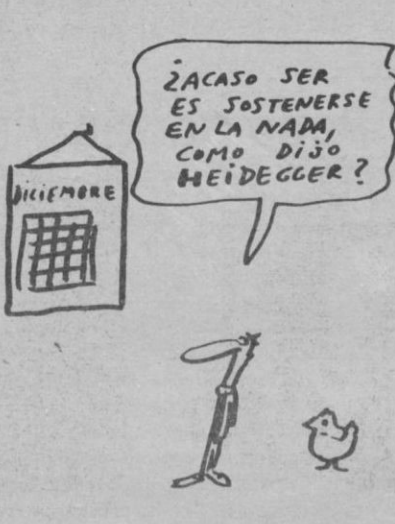 DICIEMBRE
¿ACASO SER
ES SOSTENERSE
EN LA NADA,
COMO DIJO
HEIDEGGER?